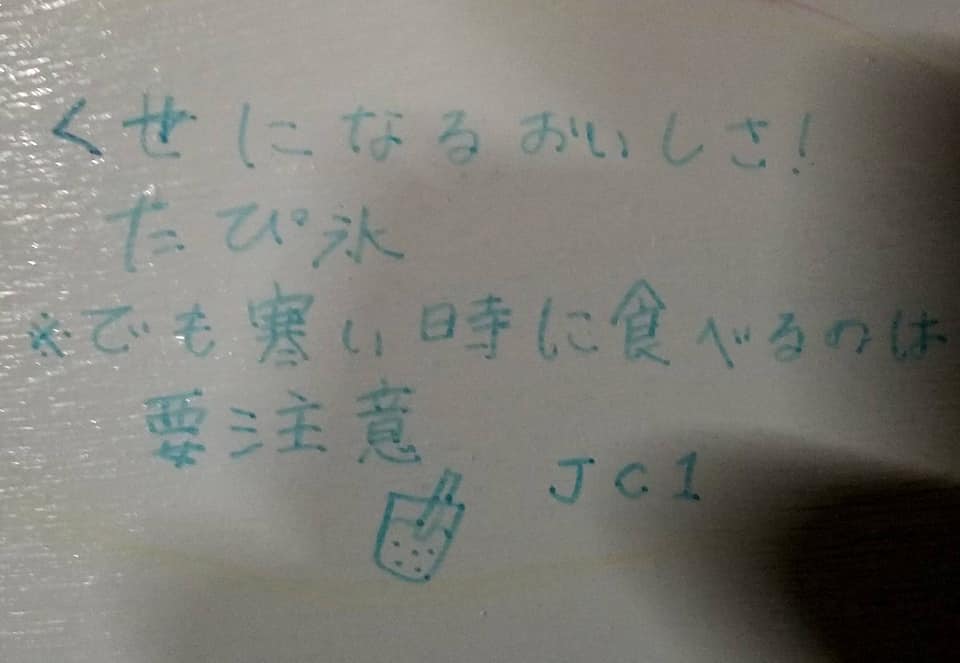 くせになるおいしさ!
たぴ氷
※でも寒い時に食べるのは
要注意
JC1